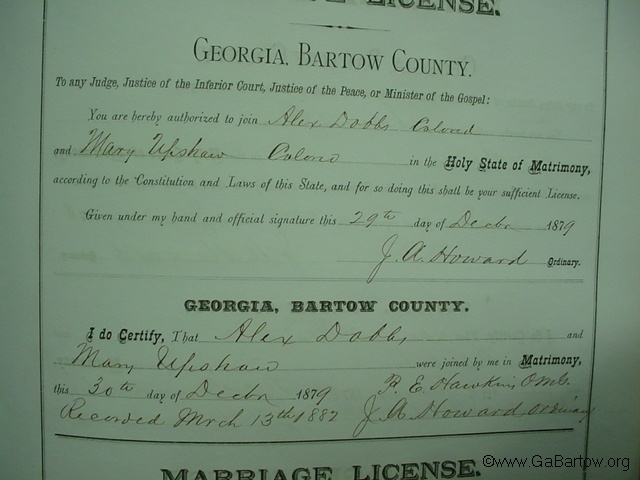 LICENSE.
GEORGIA, BARTOW COUNTY.
To any Judge, Justice of the Inferior Court, Justice of the Peace, or Minister of the Gospel:
You are hereby authorized to join Alex Dobbs Colored
and Mary Upshaw Colord in the Holy State of Matrimony,
according to the Constitution and Laws of this State, and for so doing this shall be your sufficient License.
Given under my hand and official signature this 29th day of Decbr 1879
J. A. Howard Ordinary.
GEORGIA, BARTOW COUNTY.
I do Certify, That Alex Dobbs and
Mary Upshaw were joined by me in Matrimony,
this 30th day of Decbr 1879 R. E. Hawkins
Recorded Mrch 13th 1882 J A Howard ordinary
MARRIAGE LICENSE.
©www.GaBartow.org